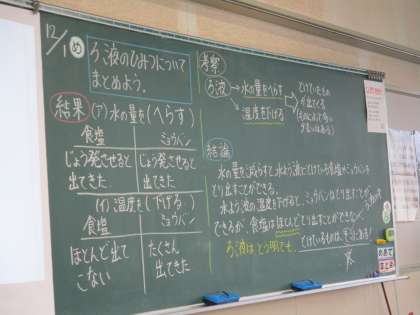 12/1
め
ろ液のひみつについて
まとめよう。
結果
(ア)水の量を(へらす)
食塩
ミョウバン
じょう発させると
出てきた
じょう発させると
出てきた
(イ)温度を(下げる)
食塩
ミョウバン
ほとんど出て
こない
たくさん
出てきた
考察
ろ液→水の量をへらす
→温度を下げる
とけているもの
が出てくる
結論
水の量を減らすと、水よう液にとけている食塩やミョウバンを
とり出すことができる。
水よう液の温度を下げると、ミョウバンはとり出すことが
できるが、食塩はほとんどとり出すことができない。
ろ液はとう明でも、
とけているものは、